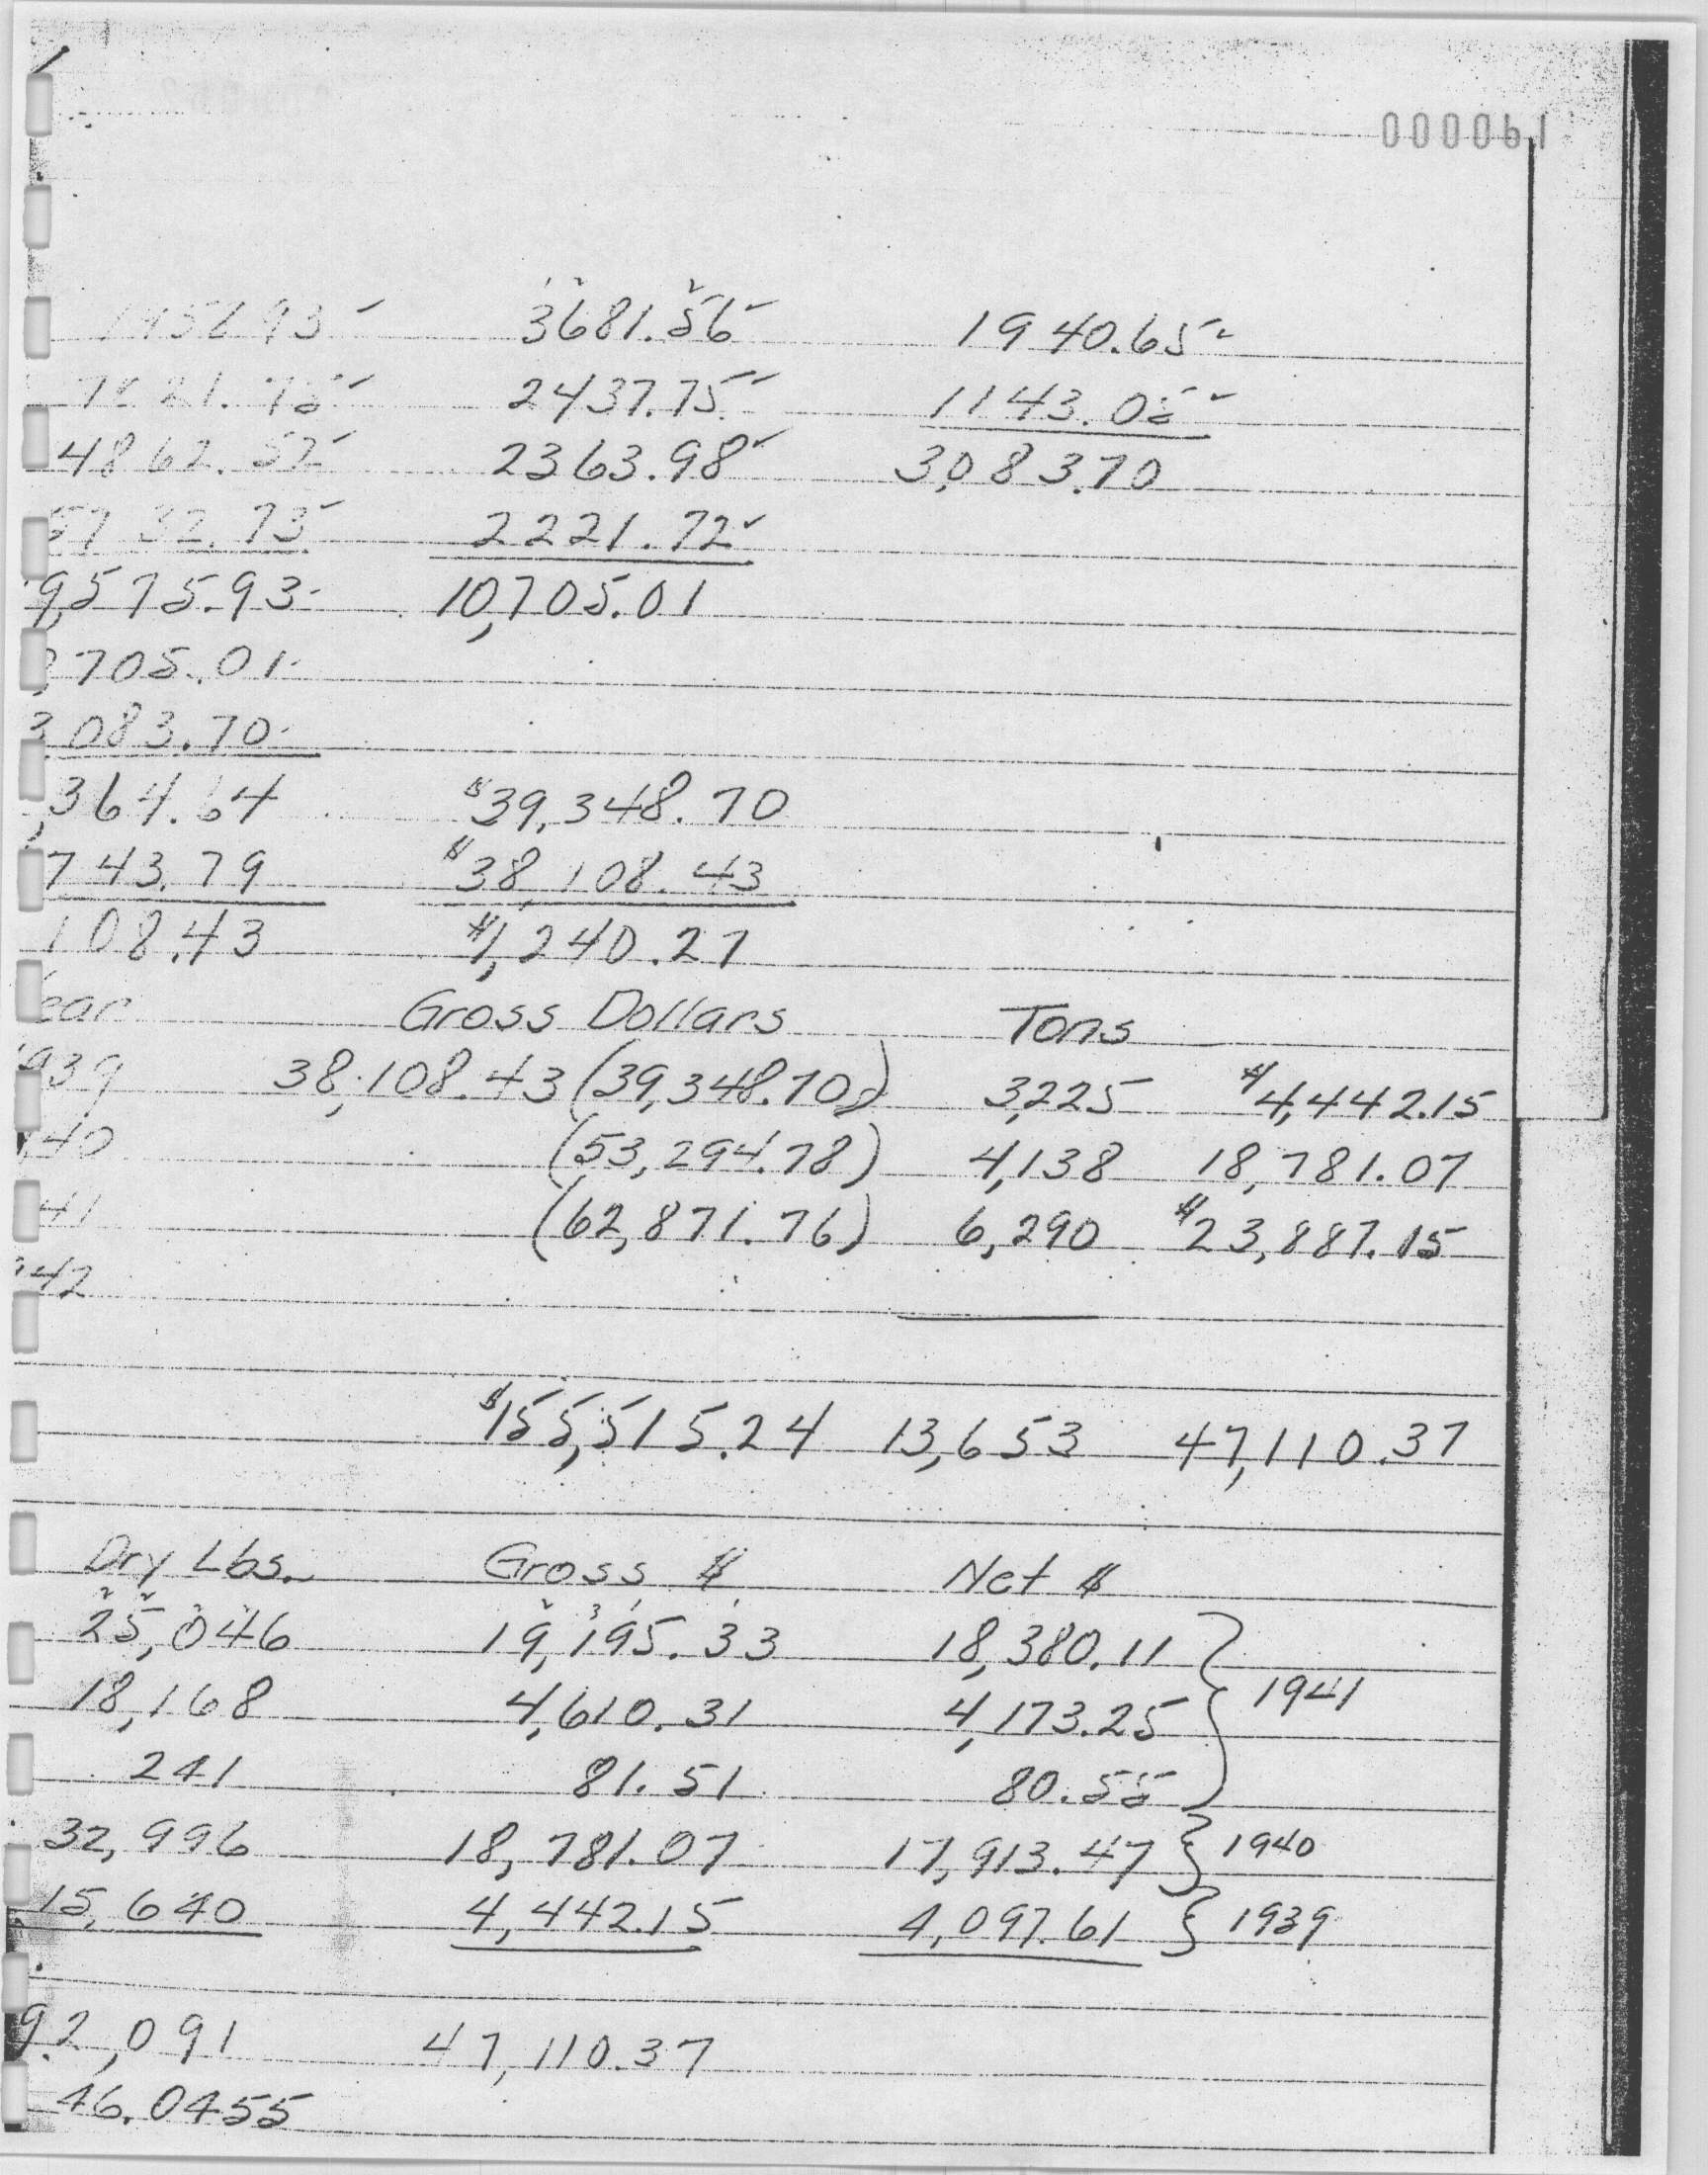 000061
3681.56 1940.65
2437.75 1143.05
4862.52 2363.98 3,083.70
5732.73 2221.72
9,575.93 10,705.01
705.01
3083.70
,364.64 $39,348.70
743.79 $38,108.43
108.43 $1,240.27
ear Gross Dollars Tons
939 38,108.43 (39,348.70) 3,225 $4,442.15
40 (53,294.78) 4,138 18,781.07
41 (62,871.76) 6,290 $23,887.15
42
$155,515.24 13,653 47,110.37
Dry Lbs. Gross $ Net $
25,046 19,195.33 18,380.11
18,168 4,610.31 4,173.25 } 1941
241 81.51 80.55
32,996 18,781.07 17,913.47 } 1940
15,640 4,442.15 4,097.61 } 1939
92,091 47,110.37
46.0455